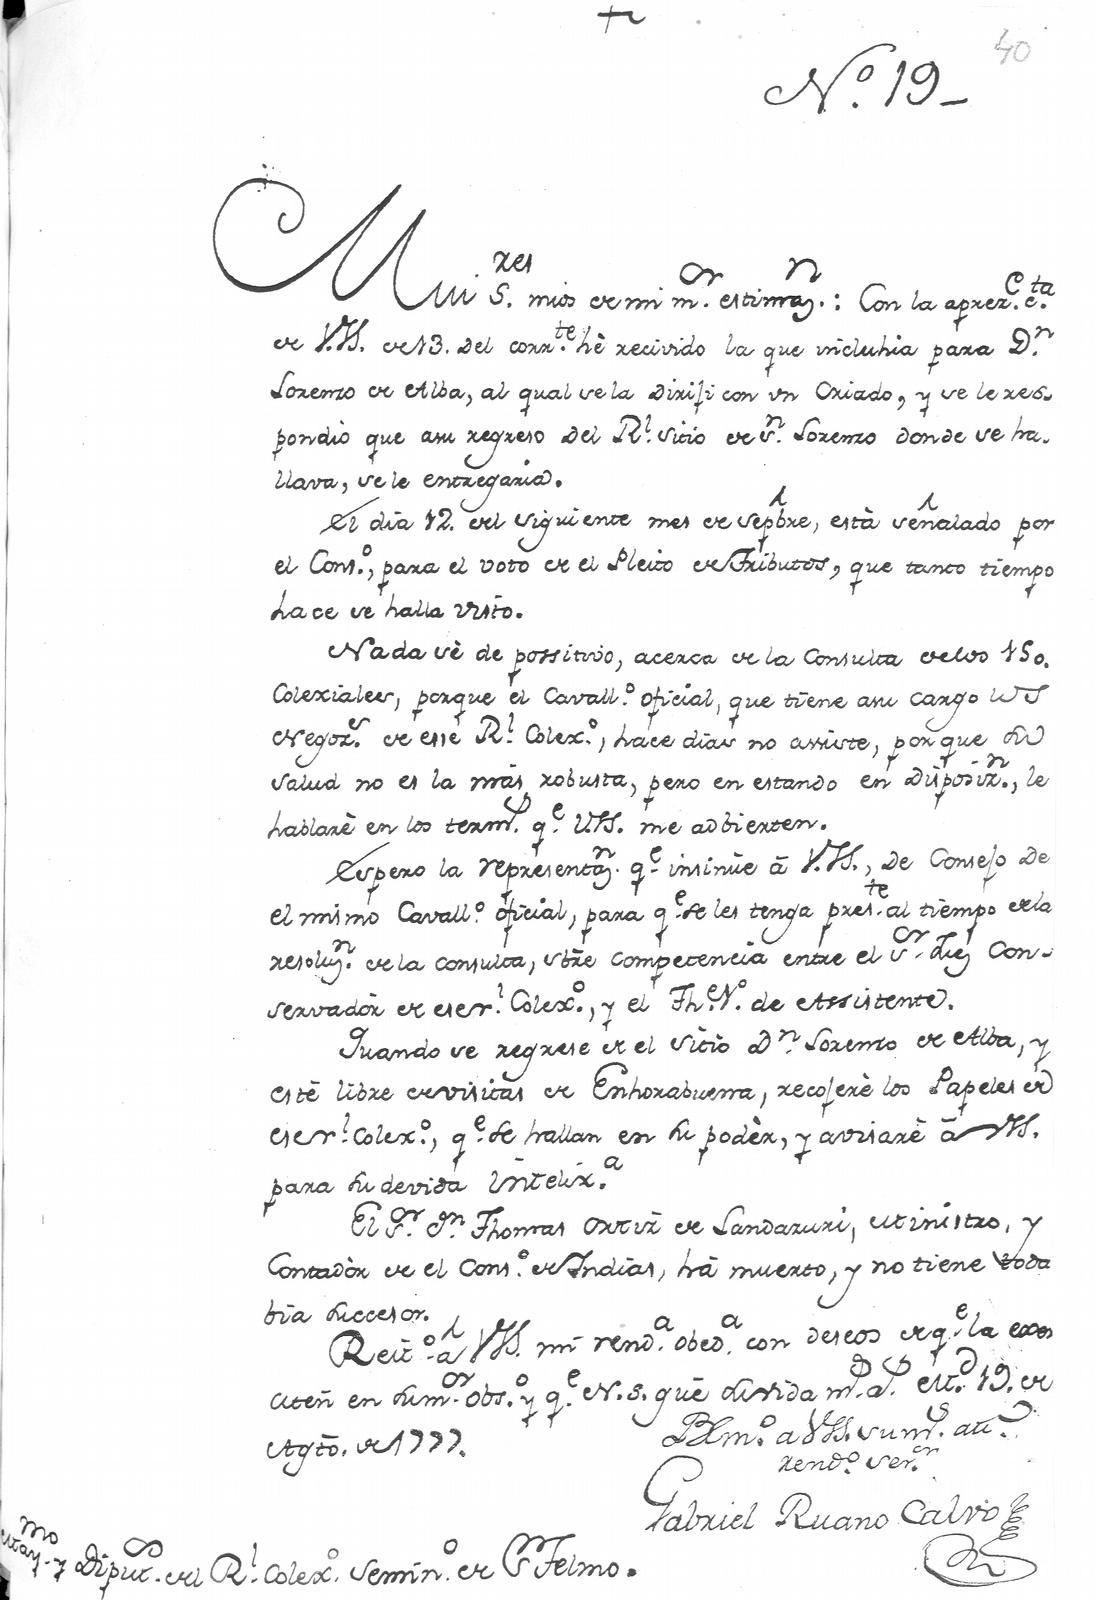 40
Nº. 19_
Mui S.res mios de mi m.or estimaz.n: Con la aprez.e c.ta
de VSS. de 13. del corr.te hè recivido la que incluhia para D.n
Lorenzo de Alba, al qual se la dirifi con un Criado, y se le res-
pondio que asu regreso del R.l sitio de S.n Lorenzo donde se ha-
llava, se le entregaria.
El dia 12. del siguiente mes de sepbre, està señalado por
el Cons.o, para el voto de el Pleito de Tributos, que tanto tiempo
hace se halla visto.
Nada sè de possitivo, acerca de la Consulta de los 150.
Colexiales, porque el Cavall.o oficial, que tiene asu cargo los
Negoz.s de esse R.l Colex.o, hace dias no assiste, porque su
salud no es la mas robusta, pero en estando en disposiz.n, le
hablarè en los term.s q.e VSS. me adbierten.
Espero la representaz.n q.e insinùe à VSS., de Consejo de
el mismo Cavall.o oficial, para q.e se les tenga pres.te al tiempo de la
resoluz.n de la consulta, sbre competencia entre el S.or Juez Con-
servadòr de ese r.l Colex.o, y el Th.e N.o de Assistente.
Quando se regrese de el sitio D.n Lorenzo de Alba, y
estè libre de visitas de Enhorabuena, recojerè los Papeles de
ese r.l Colex.o, q.e se hallan en su podèr, y avisarè à VSS.
para su devida intelix.a
El S.or D.n Thomas Ortiz de Landazuri, Ministro, y
Contadòr de el Cons.o de Indias, hà muerto, y no tiene toda
bia succesor.
Reit.o a VSS. mi rend.a obed.a con deseos de q.e la
en su m.or obs.o y q.e N. S. gue su vida m.s a.s Md. 19. de
Agto. de 1777.
BLm.o a VSS. su m.s att.o
rend.o ser.or
Gabriel Ruano Calvo
y Diput.s del R.l Colex.o Semin.o de S.n Telmo.